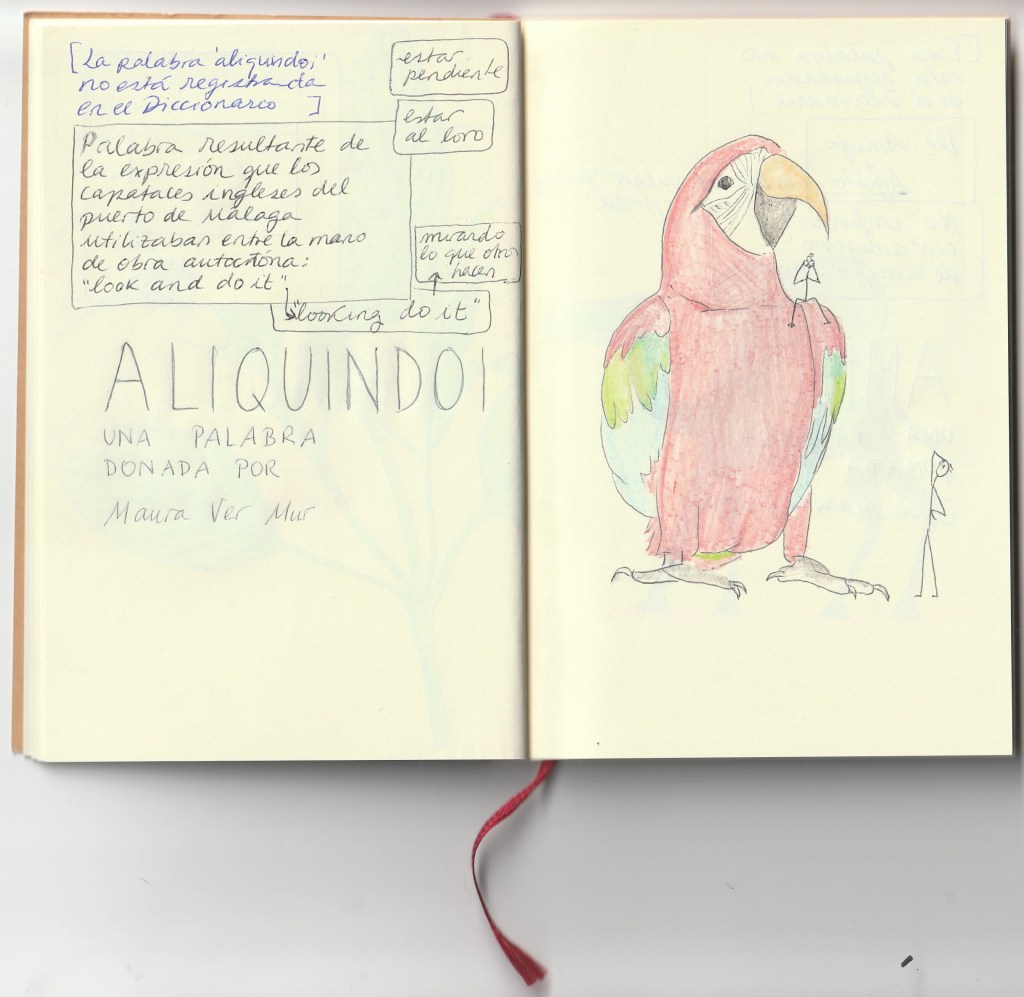 [La palabra 'aliquindoi'
no está registrada
en el Diccionario ]
estar
pendiente
estar
al loro
Palabra resultante de
la expresión que los
capataces ingleses del
puerto de Málaga
utilizaban entre la mano
de obra autoctóna:
"look and do it"
mirando
lo que otros
hacen
"looking do it"
ALIQUINDOI
UNA PALABRA
DONADA POR
Maura Ver Mur